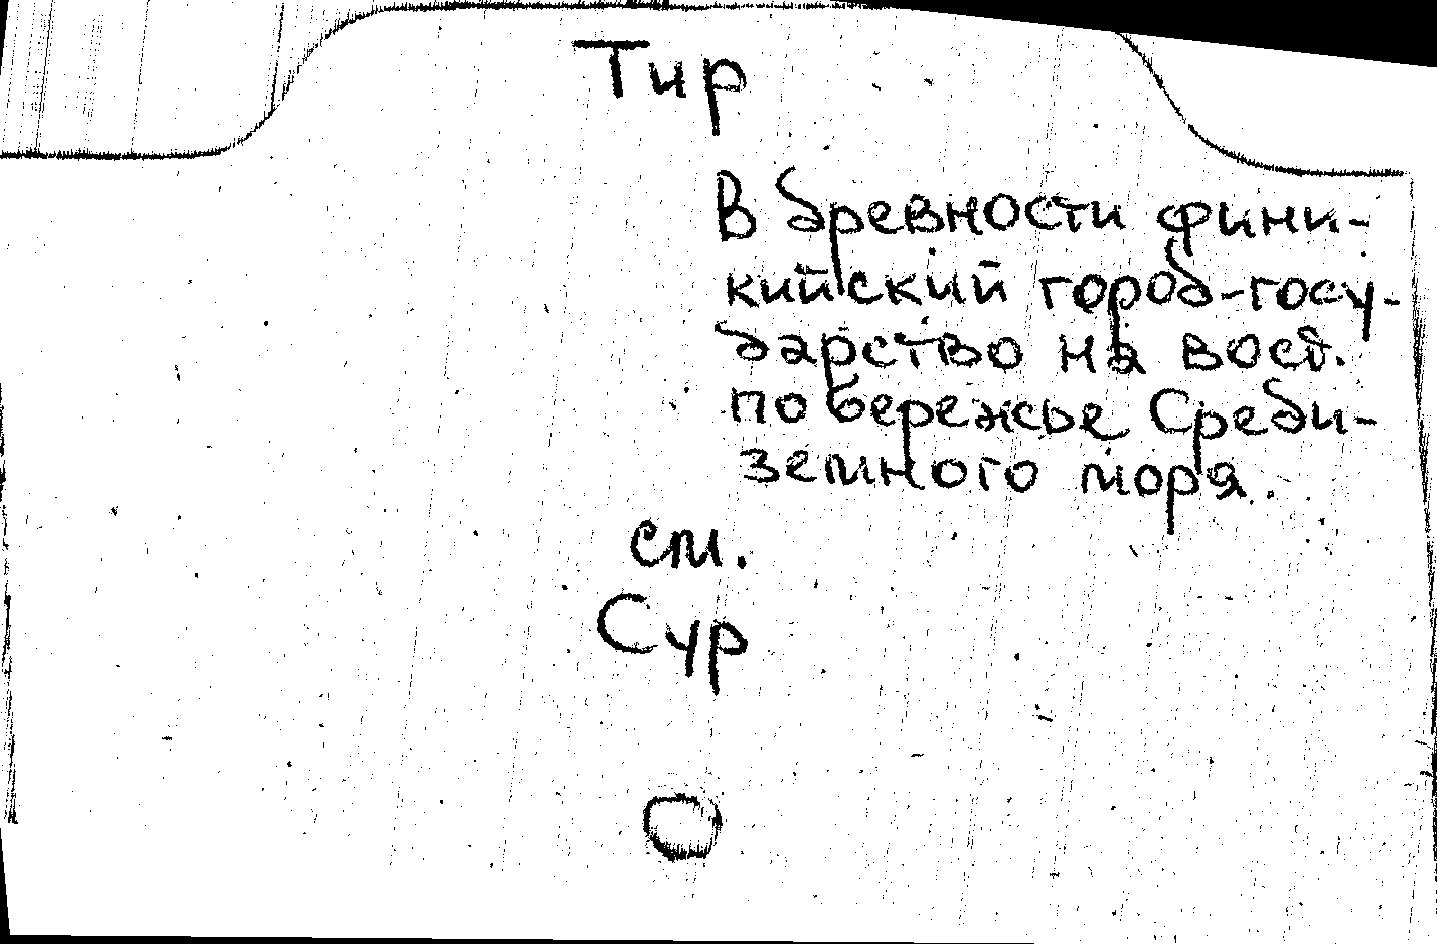 Тир
В древности фини-
кийский город-госу-
дарство на вост.
побережье Среди-
земного моря.
см.
Сур